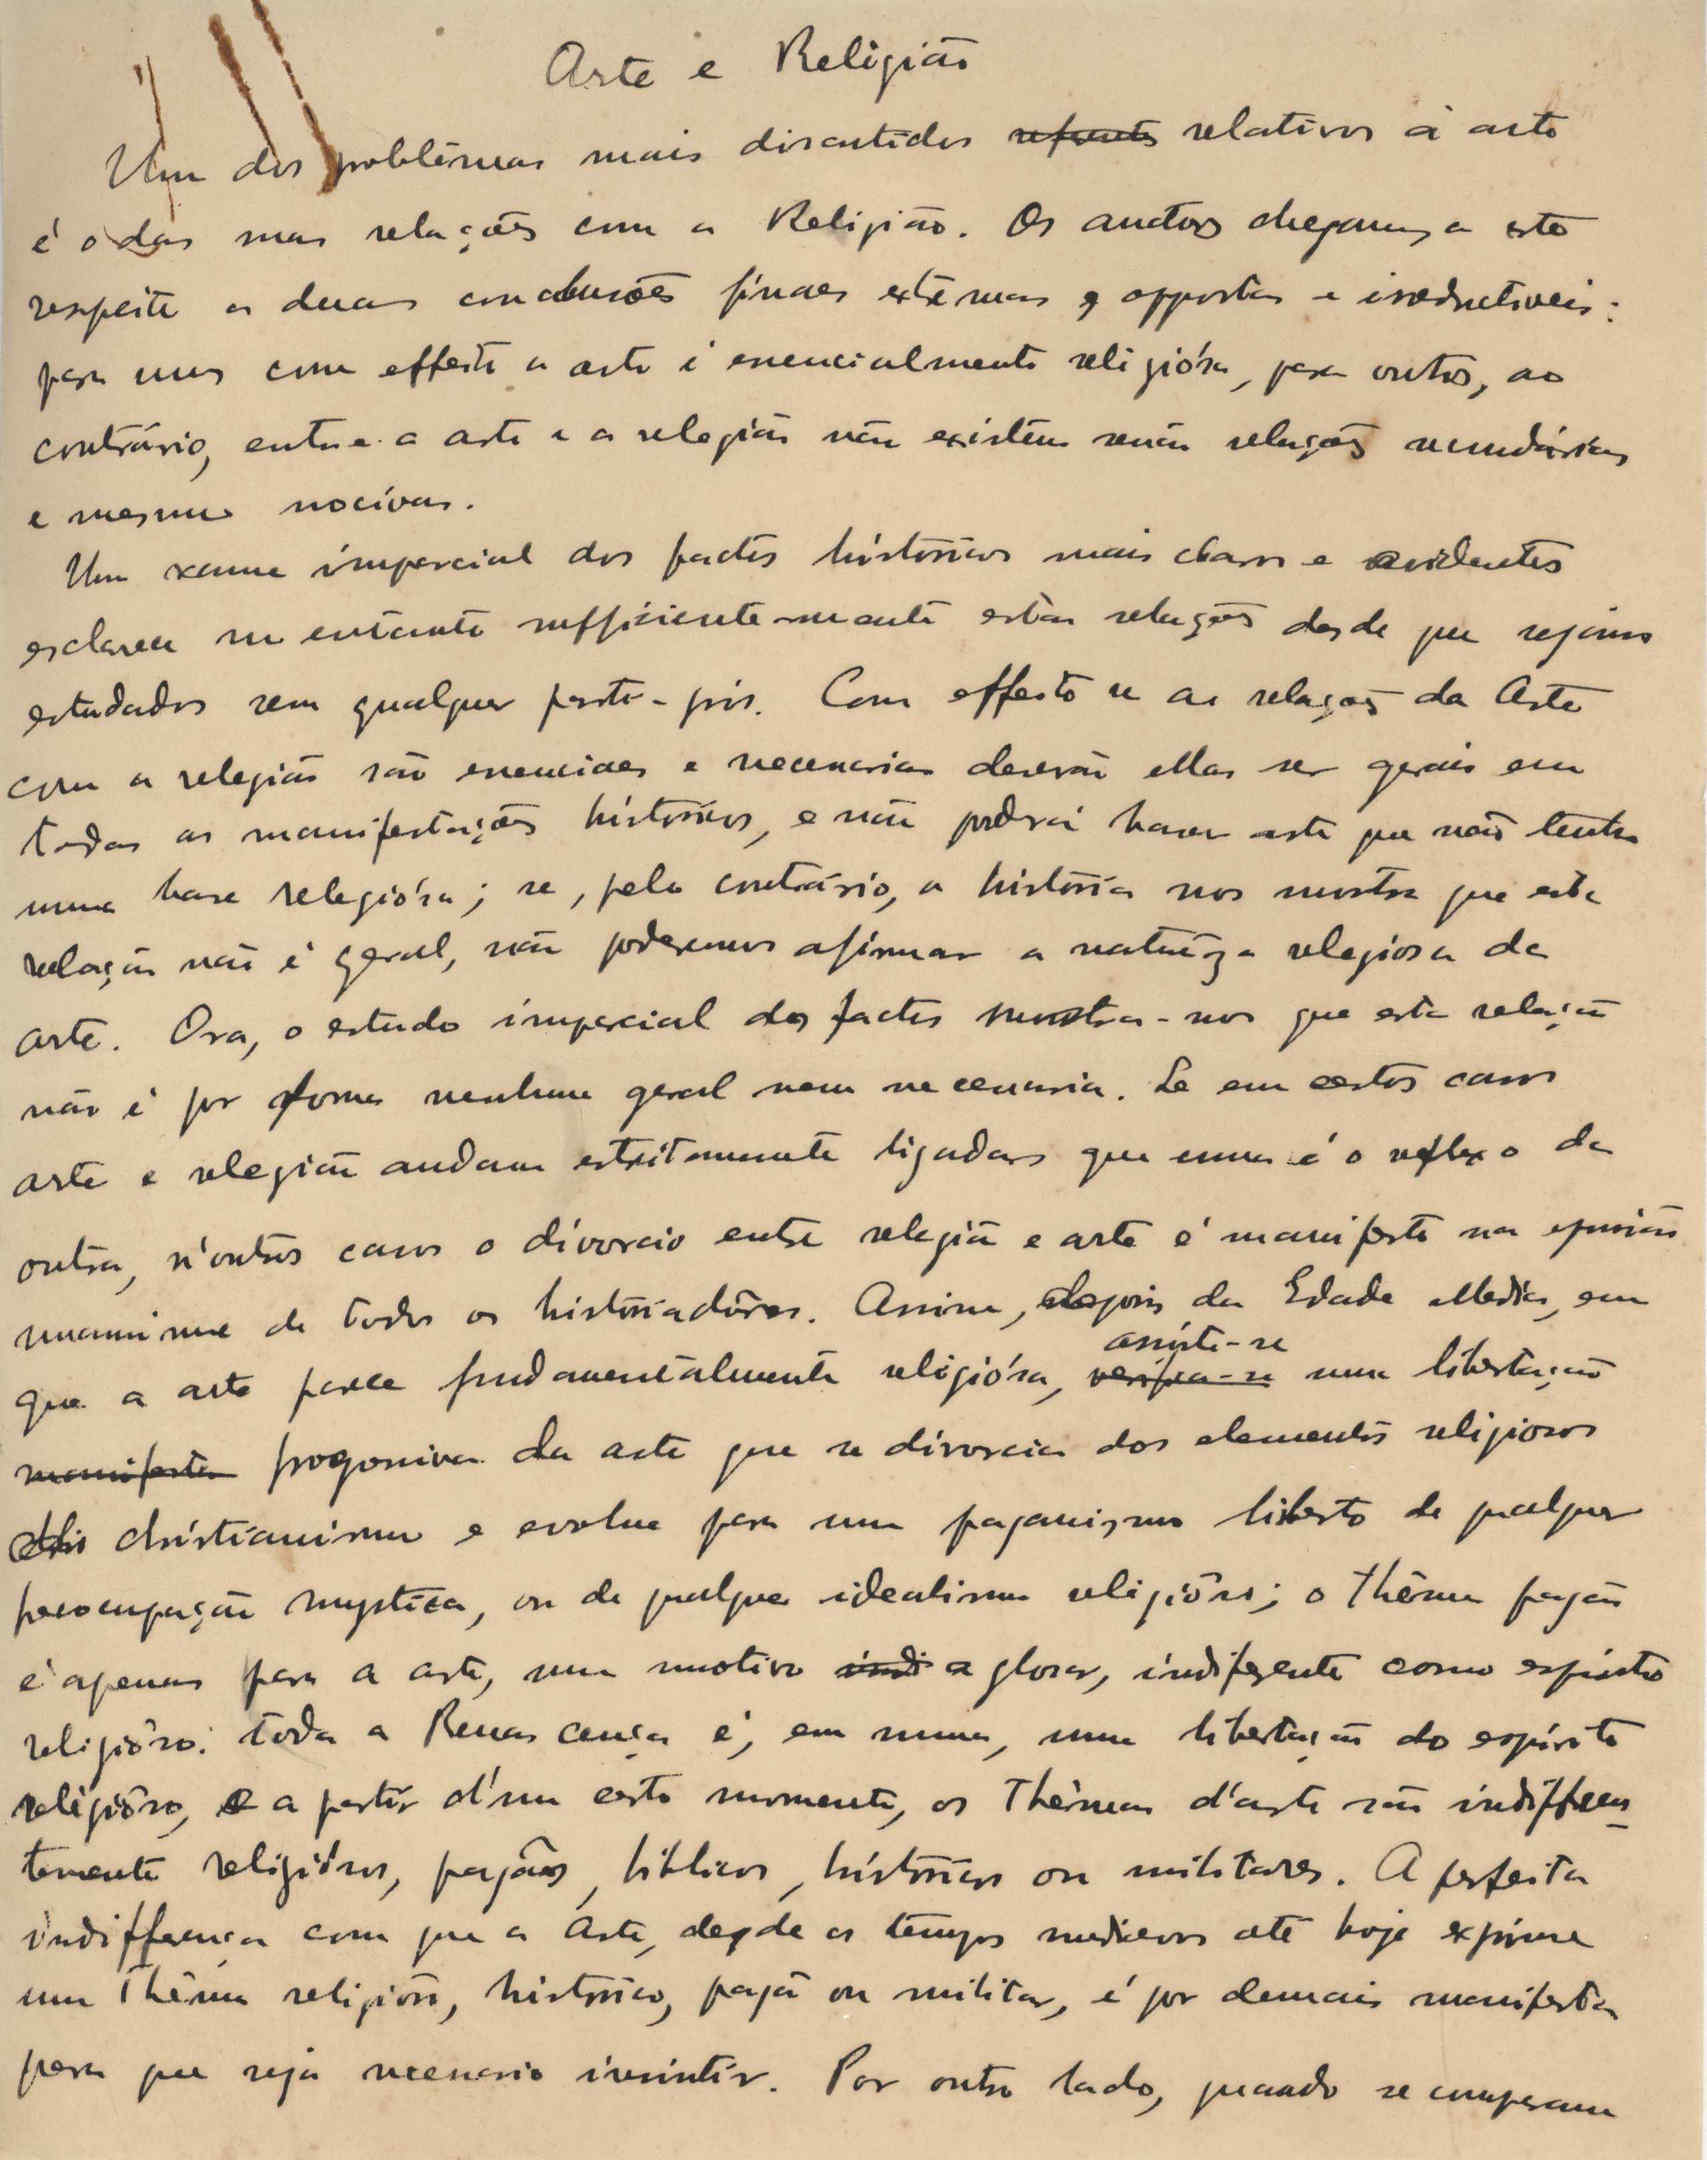 Arte e Religião
Um dos problêmas mais discutidos relativos á arte
é o das suas relações com a Religião. Os auctores chegam, a este
respeito a duas conclusões finaes extremas e oppostas e ireductiveis:
para uns com effeito a arte é essencialmente religiósa, para outros, ao
contrário, entre a arte e a relegião não existem senão relações secundárias
e mesmo nocivas.
Um exame imparcial dos factos históricos mais claros e evidentes
esclarece no entanto sufficiente-mente estas relações desde que sejam
estudados sem qualquer parti-pris. Com effeito se as relações da Arte
com a relegião são essenciaes e necessarias deverão ellas ser gerais em
todas as manifestações históricas, e não poderá haver arte que não tenha
uma base relegiósa; se, pelo contrário, a história nos mostra que esta
relação não é geral, não poderemos afirmar a natureza relegiosa da
arte. Ora, o estudo imparcial dos factos mostra-nos que esta relação
não é por forma nenhuma geral nem necessaria. Se em certos casos
arte e relegião andam estreitamente ligadas que uma é o reflexo da
outra, n'outros casos o divorcio entre relegião e arte é manifesto na opinião
unanime de todos os historiadôres. Assim, depois da Edade Media, em
que a arte parece fundamentalmente religiósa, assiste-se uma libertação
progressiva da arte que se divorcia dos elementos religiosos
christianismo e evolue para um paganismo liberto de qualquer
preocupação mystica, ou de qualquer idealismo religiôso; o thêma pagão
é apenas para a arte, um motivo a glosar, indiferente como espirito
religiôso: toda a Renascença é, em suma, uma libertação do espírito
religiôso, e a partir d'um certo momento, os thêmas d'arte são indifferen-
temente religiósos, pagãos, biblicos, históricos ou militares. A perfeita
indifferença com que a Arte, desde os tempos medievos até hoje exprime
um thêma religiôso, histórico, pagã ou militar, é por demais manifesta
para que seja necessario insistir. Por outro lado, quando se comparam